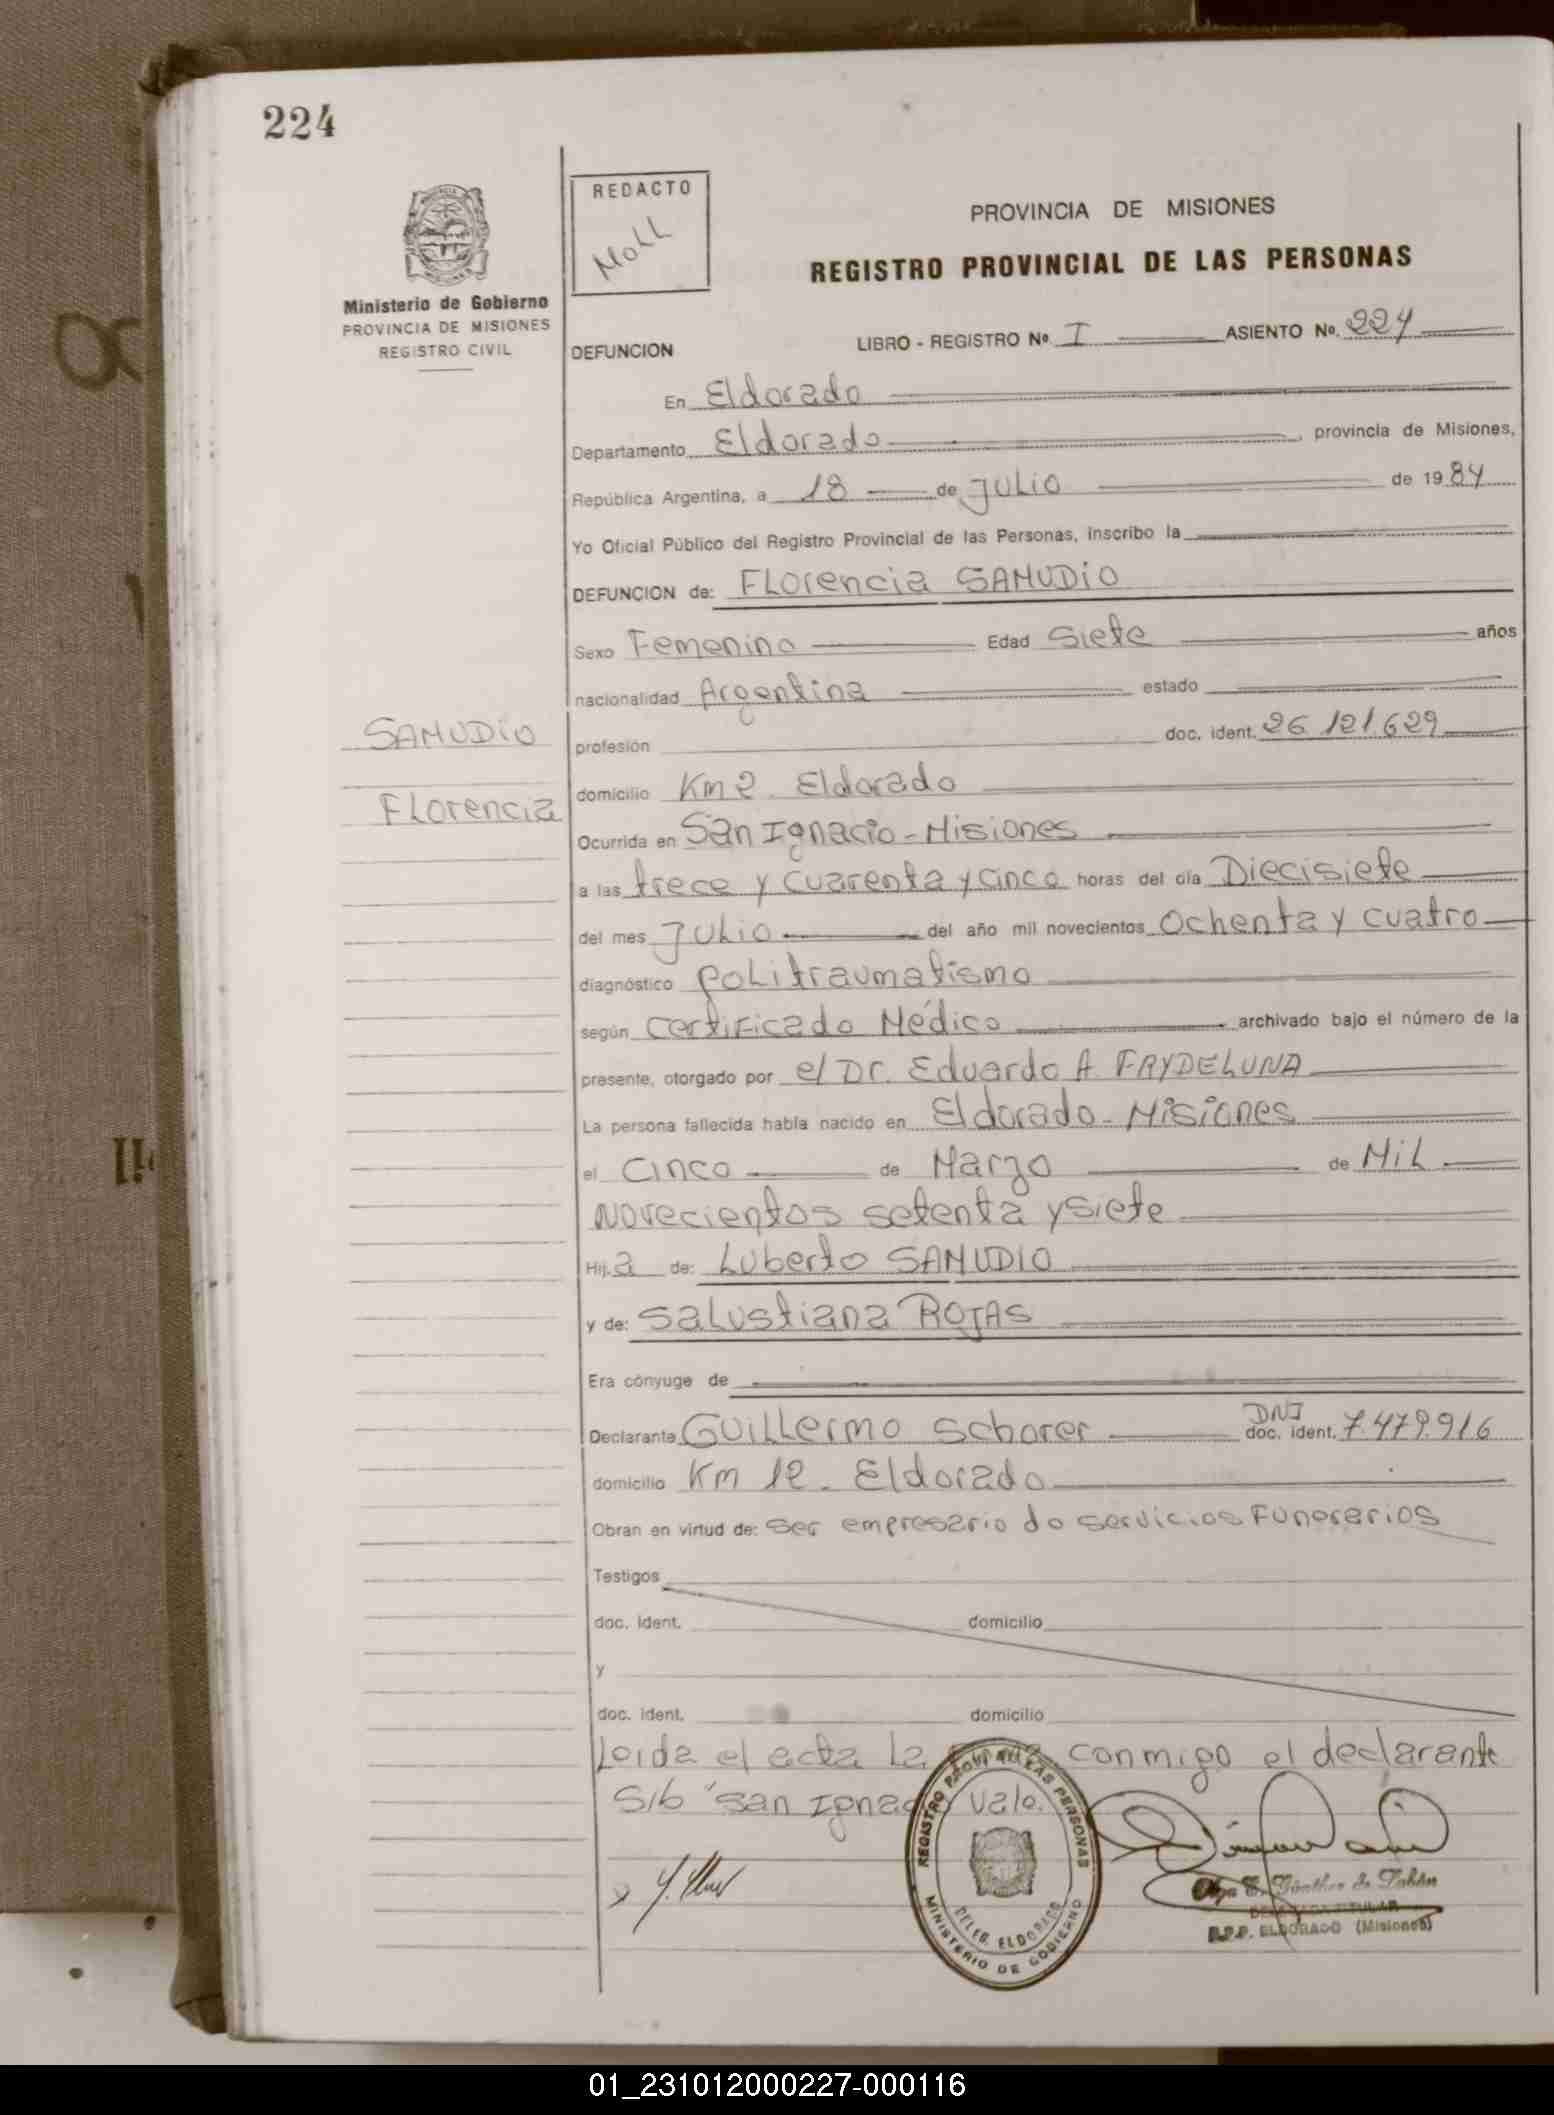 224
REDACTO
Moll
Ministerio de Gobierno
PROVINCIA DE MISIONES
REGISTRO CIVIL
PROVINCIA DE MISIONES
REGISTRO PROVINCIAL DE LAS PERSONAS
DEFUNCION LIBRO - REGISTRO Nº I ASIENTO Nº. 224
En Eldorado
Departamento Eldorado, provincia de Misiones,
República Argentina, a 18 de Julio de 1984
Yo Oficial Público del Registro Provincial de las Personas, inscribo la
DEFUNCION de: Florencia SAMUDIO
Sexo Femenino Edad Siete años
nacionalidad Argentina estado
SAMUDIO
Florencia
profesión doc. ident. 26.121.629
domicilio Km 2. Eldorado
Ocurrida en San Ignacio - Misiones
a las trece y cuarenta y cinco horas del día Diecisiete
del mes Julio del año mil novecientos Ochenta y cuatro
diagnóstico politraumatismo
según Certificado Médico archivado bajo el número de la
presente, otorgado por el Dr. Eduardo A. FRYDELUNA
La persona fallecida había nacido en Eldorado - Misiones
el Cinco de Marzo de Mil
Novecientos setenta y siete
Hija de: Luberto SAMUDIO
y de: Salustiana ROJAS
Era cónyuge de
Declarante Guillermo Schorer DNI doc. ident. 7.479.916
domicilio Km 12 - Eldorado
Obran en virtud de: ser empresario de servicios Funerarios
Testigos
doc. ident. domicilio
y
doc. ident. domicilio
Leida el acta La conmigo el declarante
S/b "San Ignacio Vale.
REGISTRO PROV. DE LAS PERSONAS
DELEG. ELDORADO
MINISTERIO DE GOBIERNO
Olga E. Günther de Fabán
DELEGADA TITULAR
R.P.P. ELDORADO (Misiones)
01_231012000227-000116